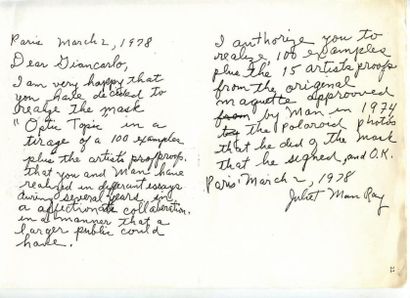 Paris March 2, 1978
Dear Giancarlo,
I am very happy that
you have decided to
realize the mask
"Optic Topic" in a
tirage of a 100 examples
plus the artists proofproofs.
that you and Man have
realized in different essays
during several years in
a affectionate collaboration.
in a manner that a
larger public could
have.
I authorize you to
realize, 100 examples
plus the 15 artists proofs
from the original
maquette approoved
from by Man in 1974
by the polaroid photos
that he did of the mask
that he signed, and O.K.
Paris March 2, 1978
Juliet Man Ray